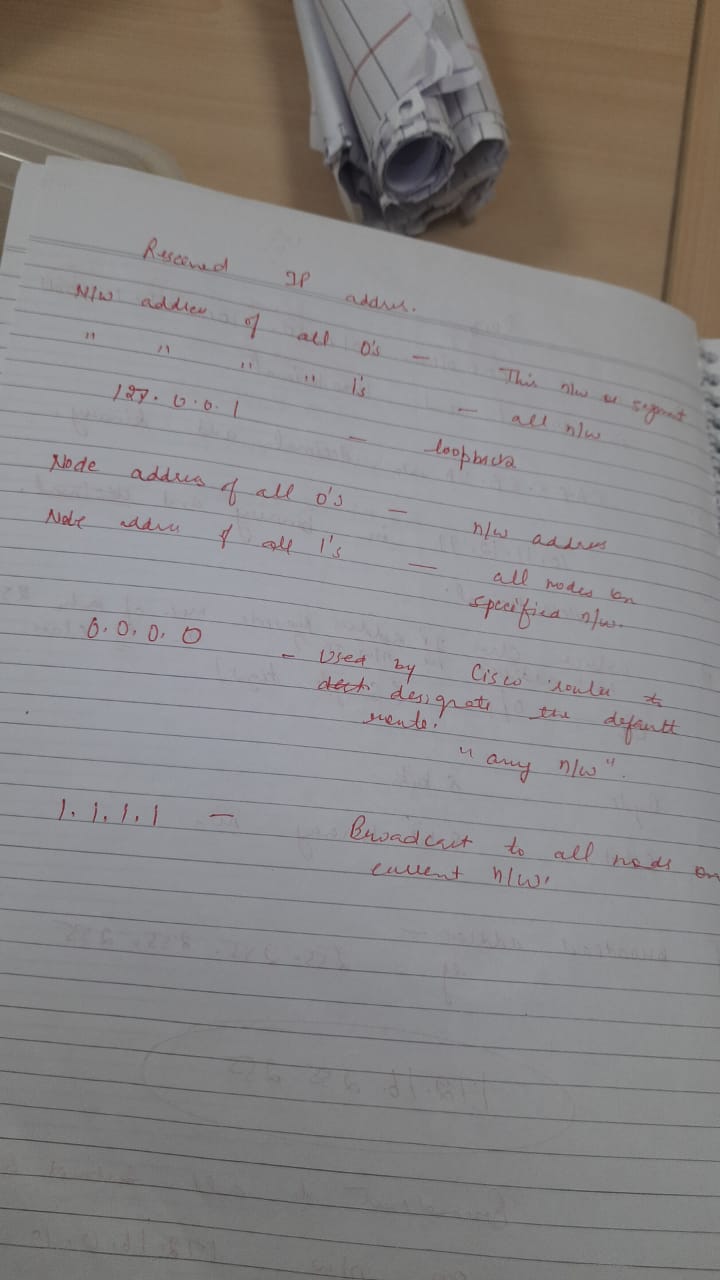 Reserved IP address.
N/W address of all 0's — This n/w or segment
" " " " 1's — all n/w
127.0.0.1 — loopback
Node address of all 0's — n/w address
Node address of all 1's — all nodes on
specified n/w.
0.0.0.0 - Used by Cisco router to
designate the default
route.
"any n/w".
1.1.1.1 — Broadcast to all nodes on
current n/w.